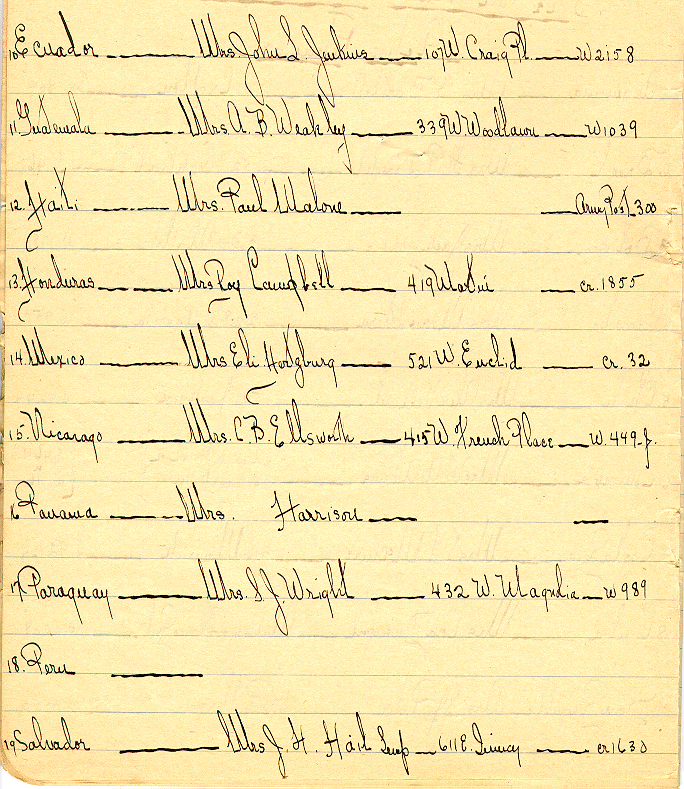 10 Ecuador — Mrs John L. Jenkins — 107 W. Craig Pl. — W 2158
11 Guatemala — Mrs A. B. Weakley — 339 W. Woodlawn — W 1039
12. Haiti — Mrs. Paul Malone — — Army Post 300
13. Honduras — Mrs Roy Campbell — 419 — cr. 1855
14. Mexico — Mrs Eli Hertzburg — 521 W. Euclid — cr. 32
15. Nicarago — Mrs. C. B. Ellsworth — 415 W. French Place — W. 449-J.
16 Panama — Mrs. Harrison — —
17. Paraguay — Mrs. S. J. Wright — 432 W. Magnolia — W 989
18. Peru —
19 Salvador — Mrs J. H. Hail — 611 E. Quincy — cr 1630